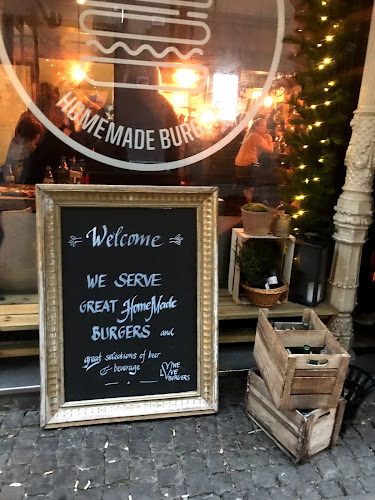 HOMEMADE BURG
Welcome
WE SERVE
GREAT HomeMade
BURGERS and
great selections of beer
& beverage
WE
LOVE
BURGERS